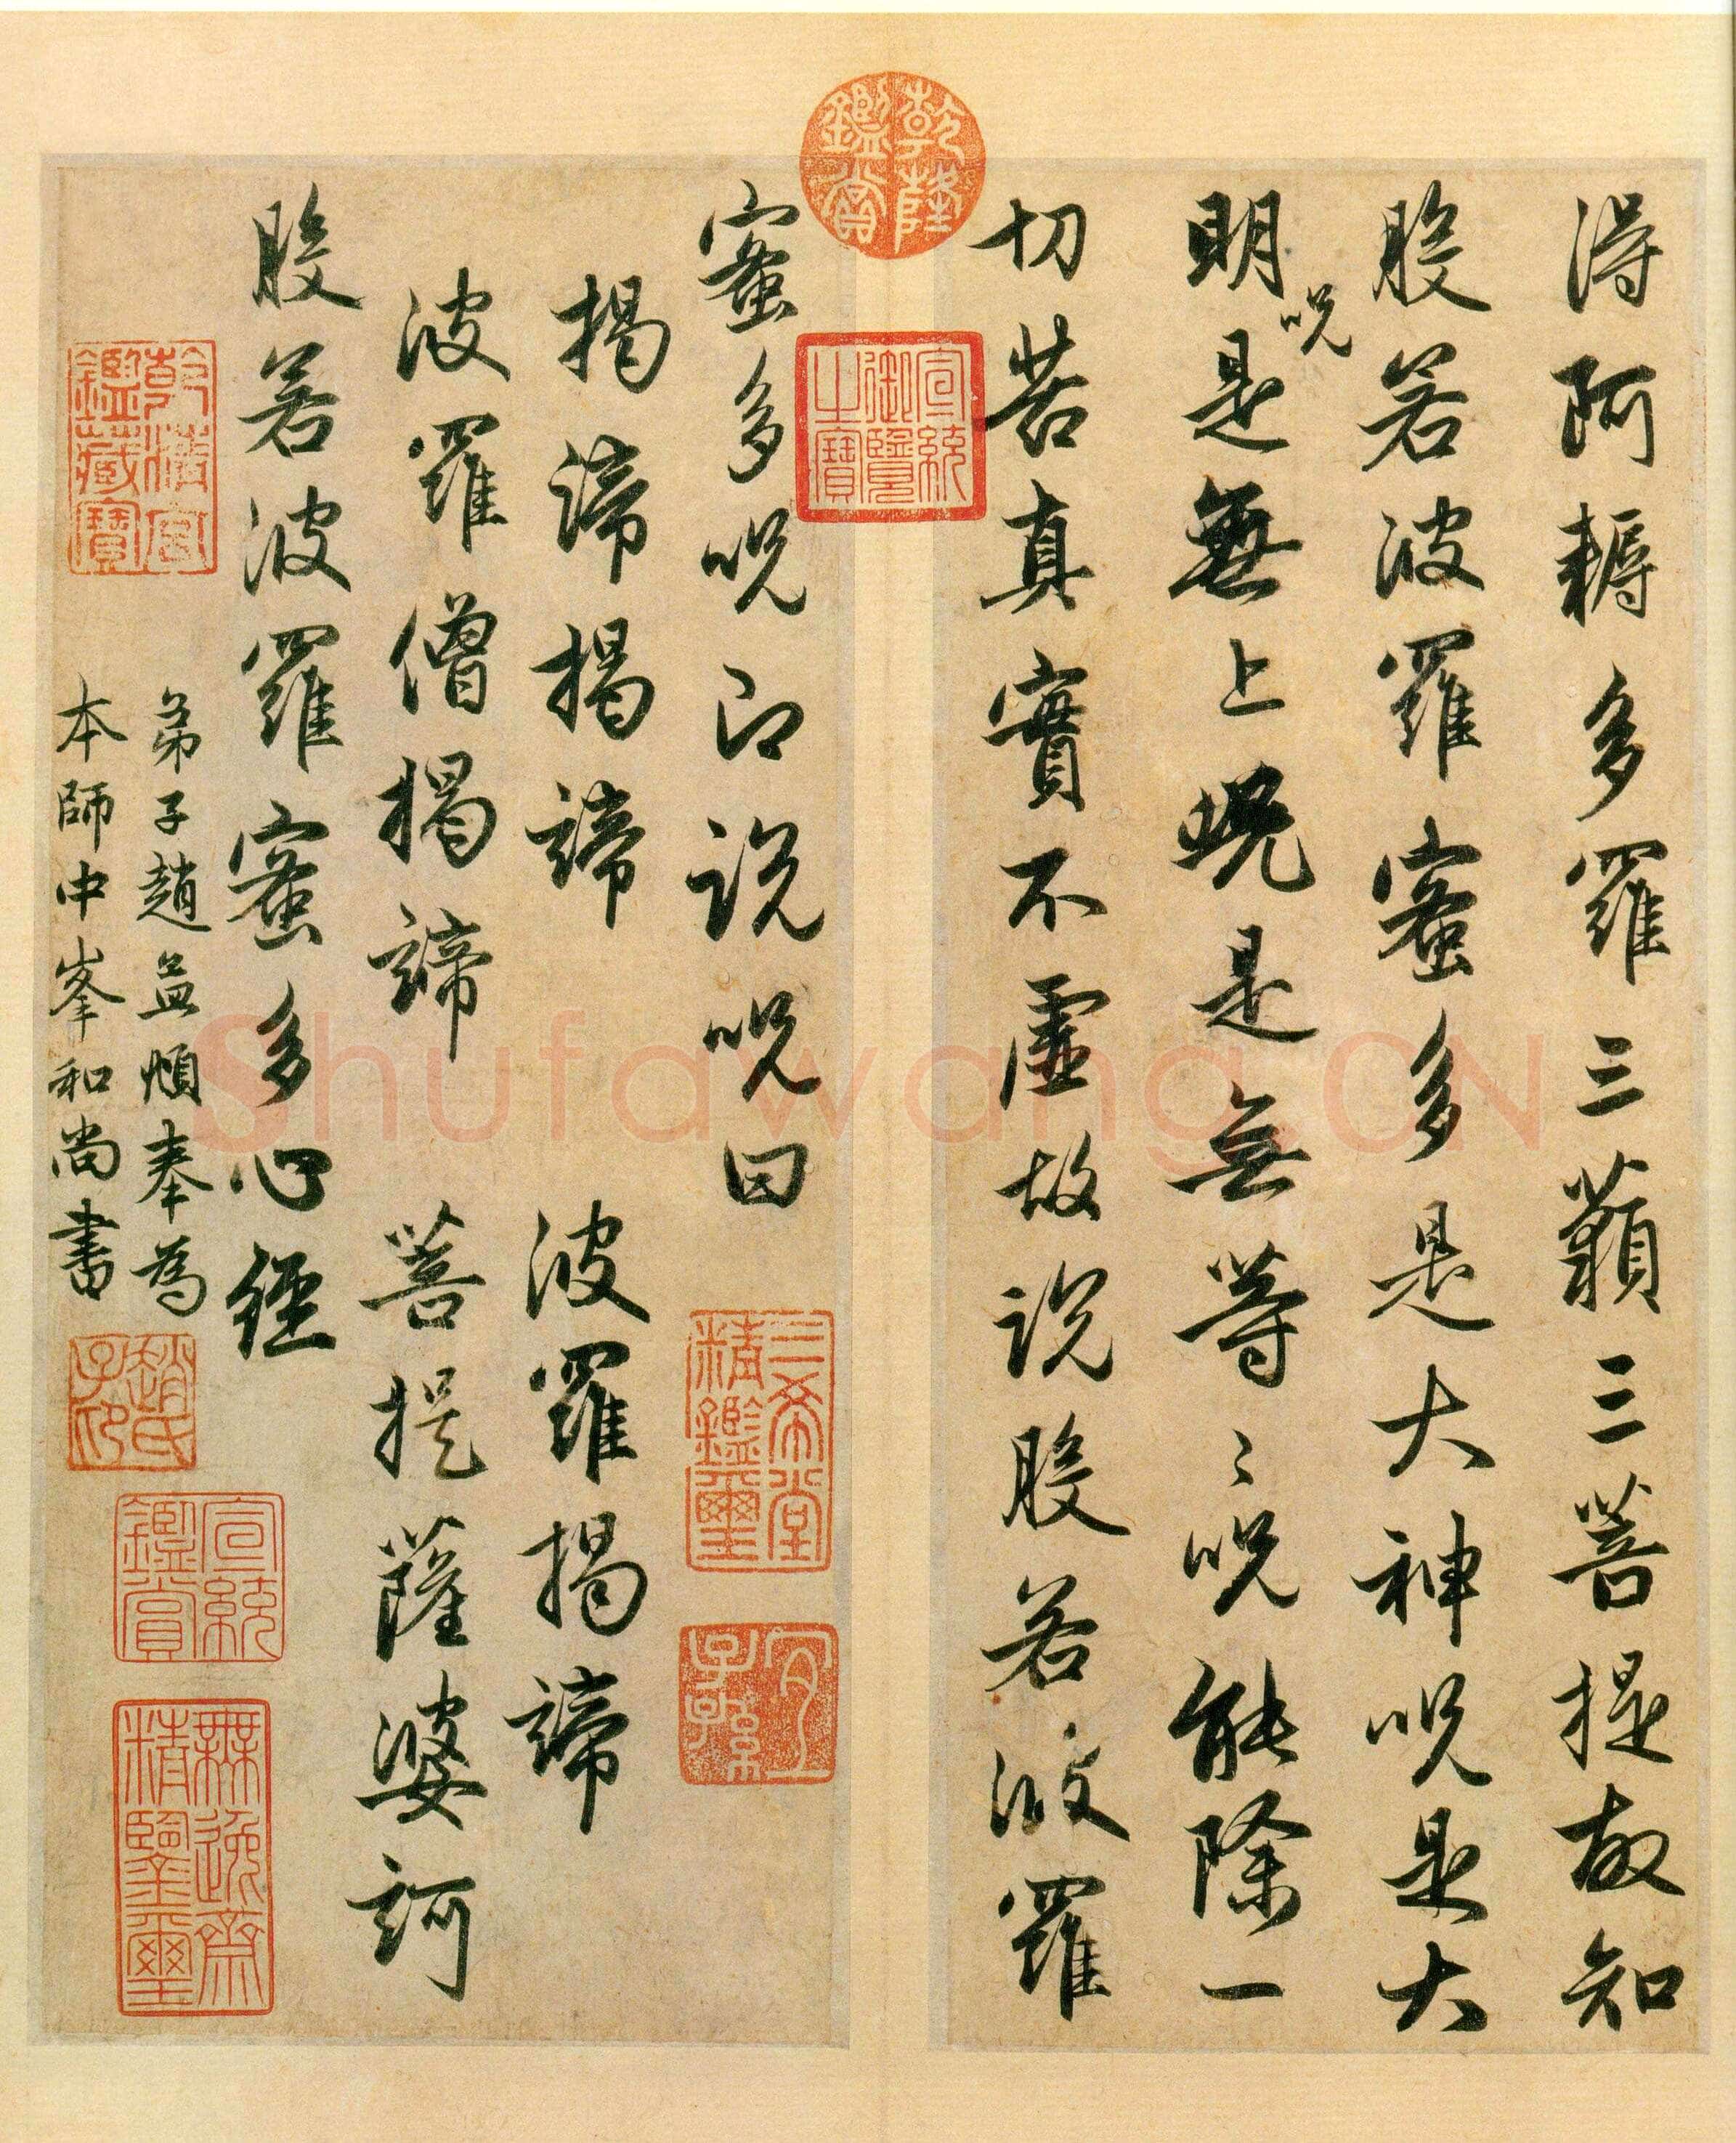 得阿耨多羅三藐三菩提故知
般若波羅蜜多是大神呪是大
明呪是無上呪是無等〻呪能除一
切苦真實不虛故说般若波羅
蜜多呪即说呪曰
揭諦揭諦 波羅揭諦
波羅僧揭諦 菩提薩婆訶
般若波羅蜜多心經
弟子趙孟頫奉為
本師中峯和尚書
乾隆鑑賞
宣統御覽之寶
三希堂精鑑璽
宜子孫
乾清宮鑑藏寶
趙氏子昂
宣統鑑賞
無逸齋精鑒璽
Shufawang.CN